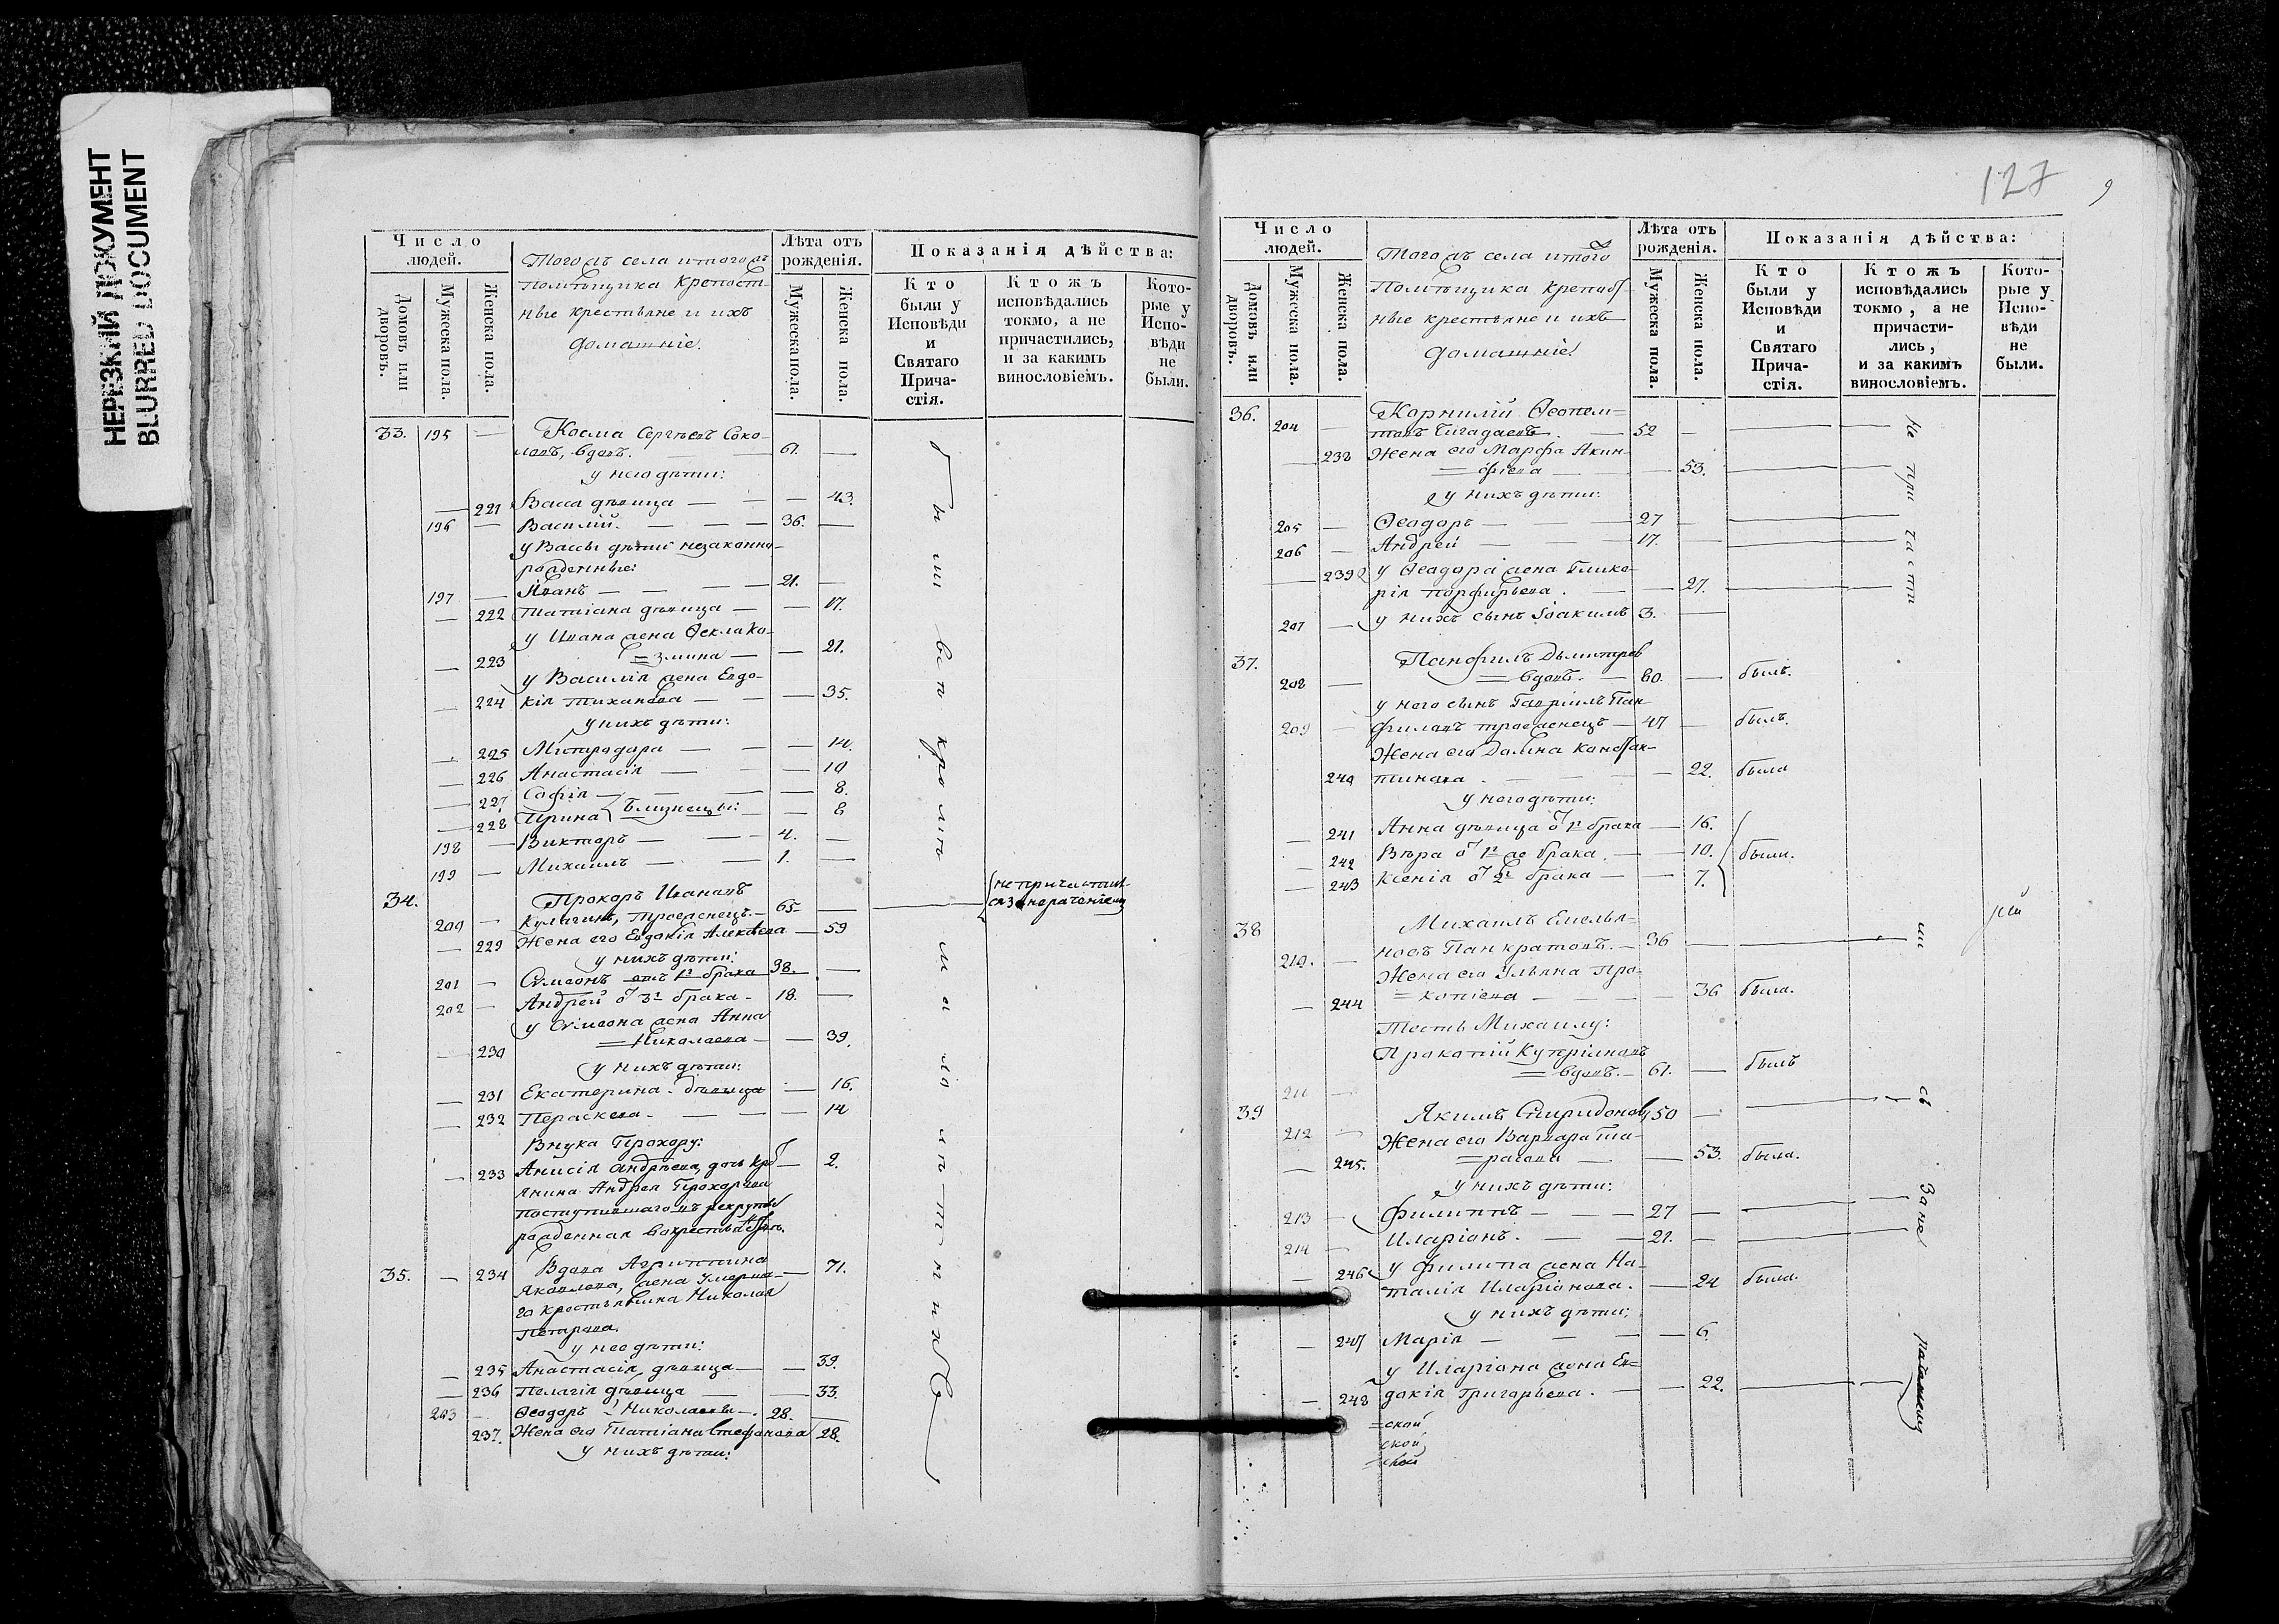 НЕРЕЗКИЙ ДОКУМЕНТ
BLURRED DOCUMENT
Число людей.
Домовъ или дворовъ.
Мужеска пола.
Женска пола.
Тогожъ села и тогожъ
Помѣщика Крепост-
ные крестьяне и ихъ
домашніе.
Лѣта отъ рожденія.
Мужеска пола.
Женска пола.
Показанія дѣйства:
Кто были у Исповѣди и Святаго Причастія.
Ктожъ исповѣдались токмо, а не причастились, и за какимъ винословіемъ.
Которые у Исповѣди не были.
33. 195 — Косма Сергѣевъ Соко-
ловъ, вдовъ. — 61. —
у него дѣти:
— 221 Васса дѣвица — — — 43.
196 — Василій. — — — 36. —
у Вассы дѣти незаконно-
рожденные:
197 — Іванъ — — — 21. —
— 222 Татіана дѣвица — — 17.
у Ивана жена Ѳекла Ко-
— 223 =змина — — 21.
у Василія жена Евдо-
— 224 кія Тиханова — — 35.
у нихъ дѣти:
— 225 Митродора — — — 14.
— 226 Анастасія — — — 10
— 227 Софія — — — 8.
— 228 Ирина близнецы: — 8
198 — Викторъ — — — 4. —
199 — Михаилъ — — 1. —
34. Прохоръ Ивановъ
200 — Кулагинъ, троеженецъ. — 65 — —
не причастил-
ся за нераченіемъ
— 229 Жена его Евдокія Алексѣева — 59
у нихъ дѣти:
201 — Сѵмеонъ отъ 1го брака 38. —
202 — Андрей от 3го брака — 18. —
у Сѵмеона жена Анна
— 230 =Николаева — — 39.
у нихъ дѣти:
— 231 Екатерина. дѣвица — 16.
— 232 Параскева — — — 14
Внука Прохору:
— 233 Анисія Андрѣева, дочь Крест — 2.
янина Андрея Прохорова
поступившаго въ рекруты
рожденная в крестьянствѣ.
35. — 234 Вдова Агриппина — 71.
Яковлева, жена умерша-
го крестьянина Николая
Петрова.
у нее дѣти:
— 235 Анастасія, дѣвица — — 39.
— 236 Пелагія дѣвица — — 33.
203 — Ѳеодоръ Николаевъ — 28. —
237. Жена его Татіана Стефанова 28.
у нихъ дѣти:
Были вси кромѣ малолѣтнихъ
127
9
Число людей.
Домовъ или дворовъ.
Мужеска пола.
Женска пола.
Тогожъ села и того
Помѣщика крепост-
ные крестьяне и ихъ
домашніе.
Лѣта отъ рожденія.
Мужеска пола.
Женска пола.
Показанія дѣйства:
Кто были у Исповѣди и Святаго Причастія.
Ктожъ исповѣдались токмо, а не причастились, и за какимъ винословіемъ.
Которые у Исповѣди не были.
36. 204 — Корнилій Ѳеопем-
товъ Чигадаевъ. — 52 —
— 238 Жена его Марфа Акин-
=фіева — — 53.
у нихъ дѣти:
205 — Ѳеодоръ — — 27 —
206 — Андрей — — — 17. —
— 239 у Ѳеодора жена Глике-
рія Порфирьева. — — 27.
207 — у нихъ сынъ Іоакимъ 3. —
37. Панфилъ Дьмитрев
208 — =вдовъ. — 80. — былъ.
у него сынъ Гавріилъ Пан
209 — филовъ троеженецъ — 47 — былъ.
Жена его Домна Констан-
240 тинова — — — 22. была
у него дѣти:
— 241 Анна дѣвица от 1го брака — 16.
— 242 Вѣра от 1го же брака. — — 10. были.
— 243 Ксенія от 2го брака — — 7.
38 Михаилъ Емелья-
210. — новъ Панкратовъ. — 36 —
Жена его Ульяна Про-
— 244 =копіева — — — 36 была.
Тесть Михаилу:
Прокопій Купріяновъ
211 — =вдовъ. — 61. — былъ
39 Якимъ Спиридоновъ 50 —
212 — Жена его Варвара Та-
— 245. =расова — — 53. была.
у нихъ дѣти:
213 — Филиппъ — — — 27 —
214 — Иларіонъ. — — 21. —
— 246 у Филипа жена На-
талія Иларіонова. — 24 была.
у нихъ дѣти:
— 247 Марія — — — 6.
у Иларіона жена Ев-
— 248 докія Григорьева. — — 22.
=ской
ской
=ской
Не причасти
ли
сь
За не